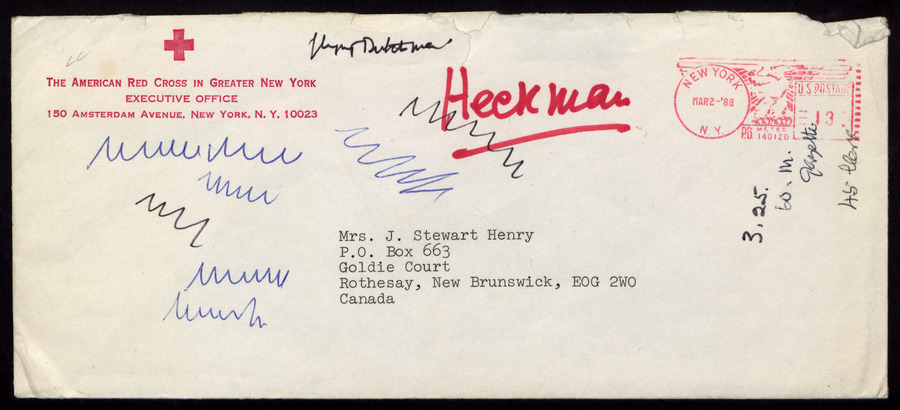 Flying Dutchman
Heckman
THE AMERICAN RED CROSS IN GREATER NEW YORK
EXECUTIVE OFFICE
150 AMSTERDAM AVENUE, NEW YORK, N. Y. 10023
NEW YORK
MAR2-'88
N.Y.
U.S. POSTAGE
13
P.B. METER
140120
3.25.
W. M.
Gazette
45
Mrs. J. Stewart Henry
P.O. Box 663
Goldie Court
Rothesay, New Brunswick, EOG 2WO
Canada